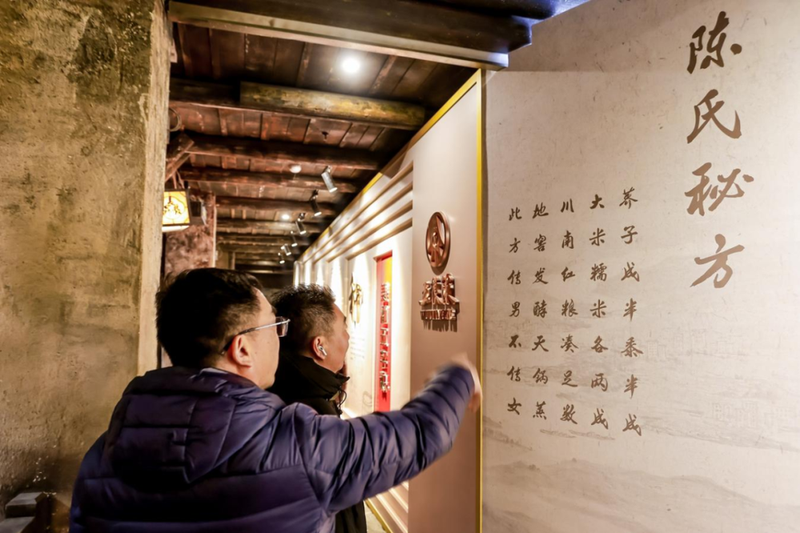 陈氏秘方
荞子成半黍半成
大米糯米各两成
川南红粮凑足数
地窖发酵天锅蒸
此方传男不传女